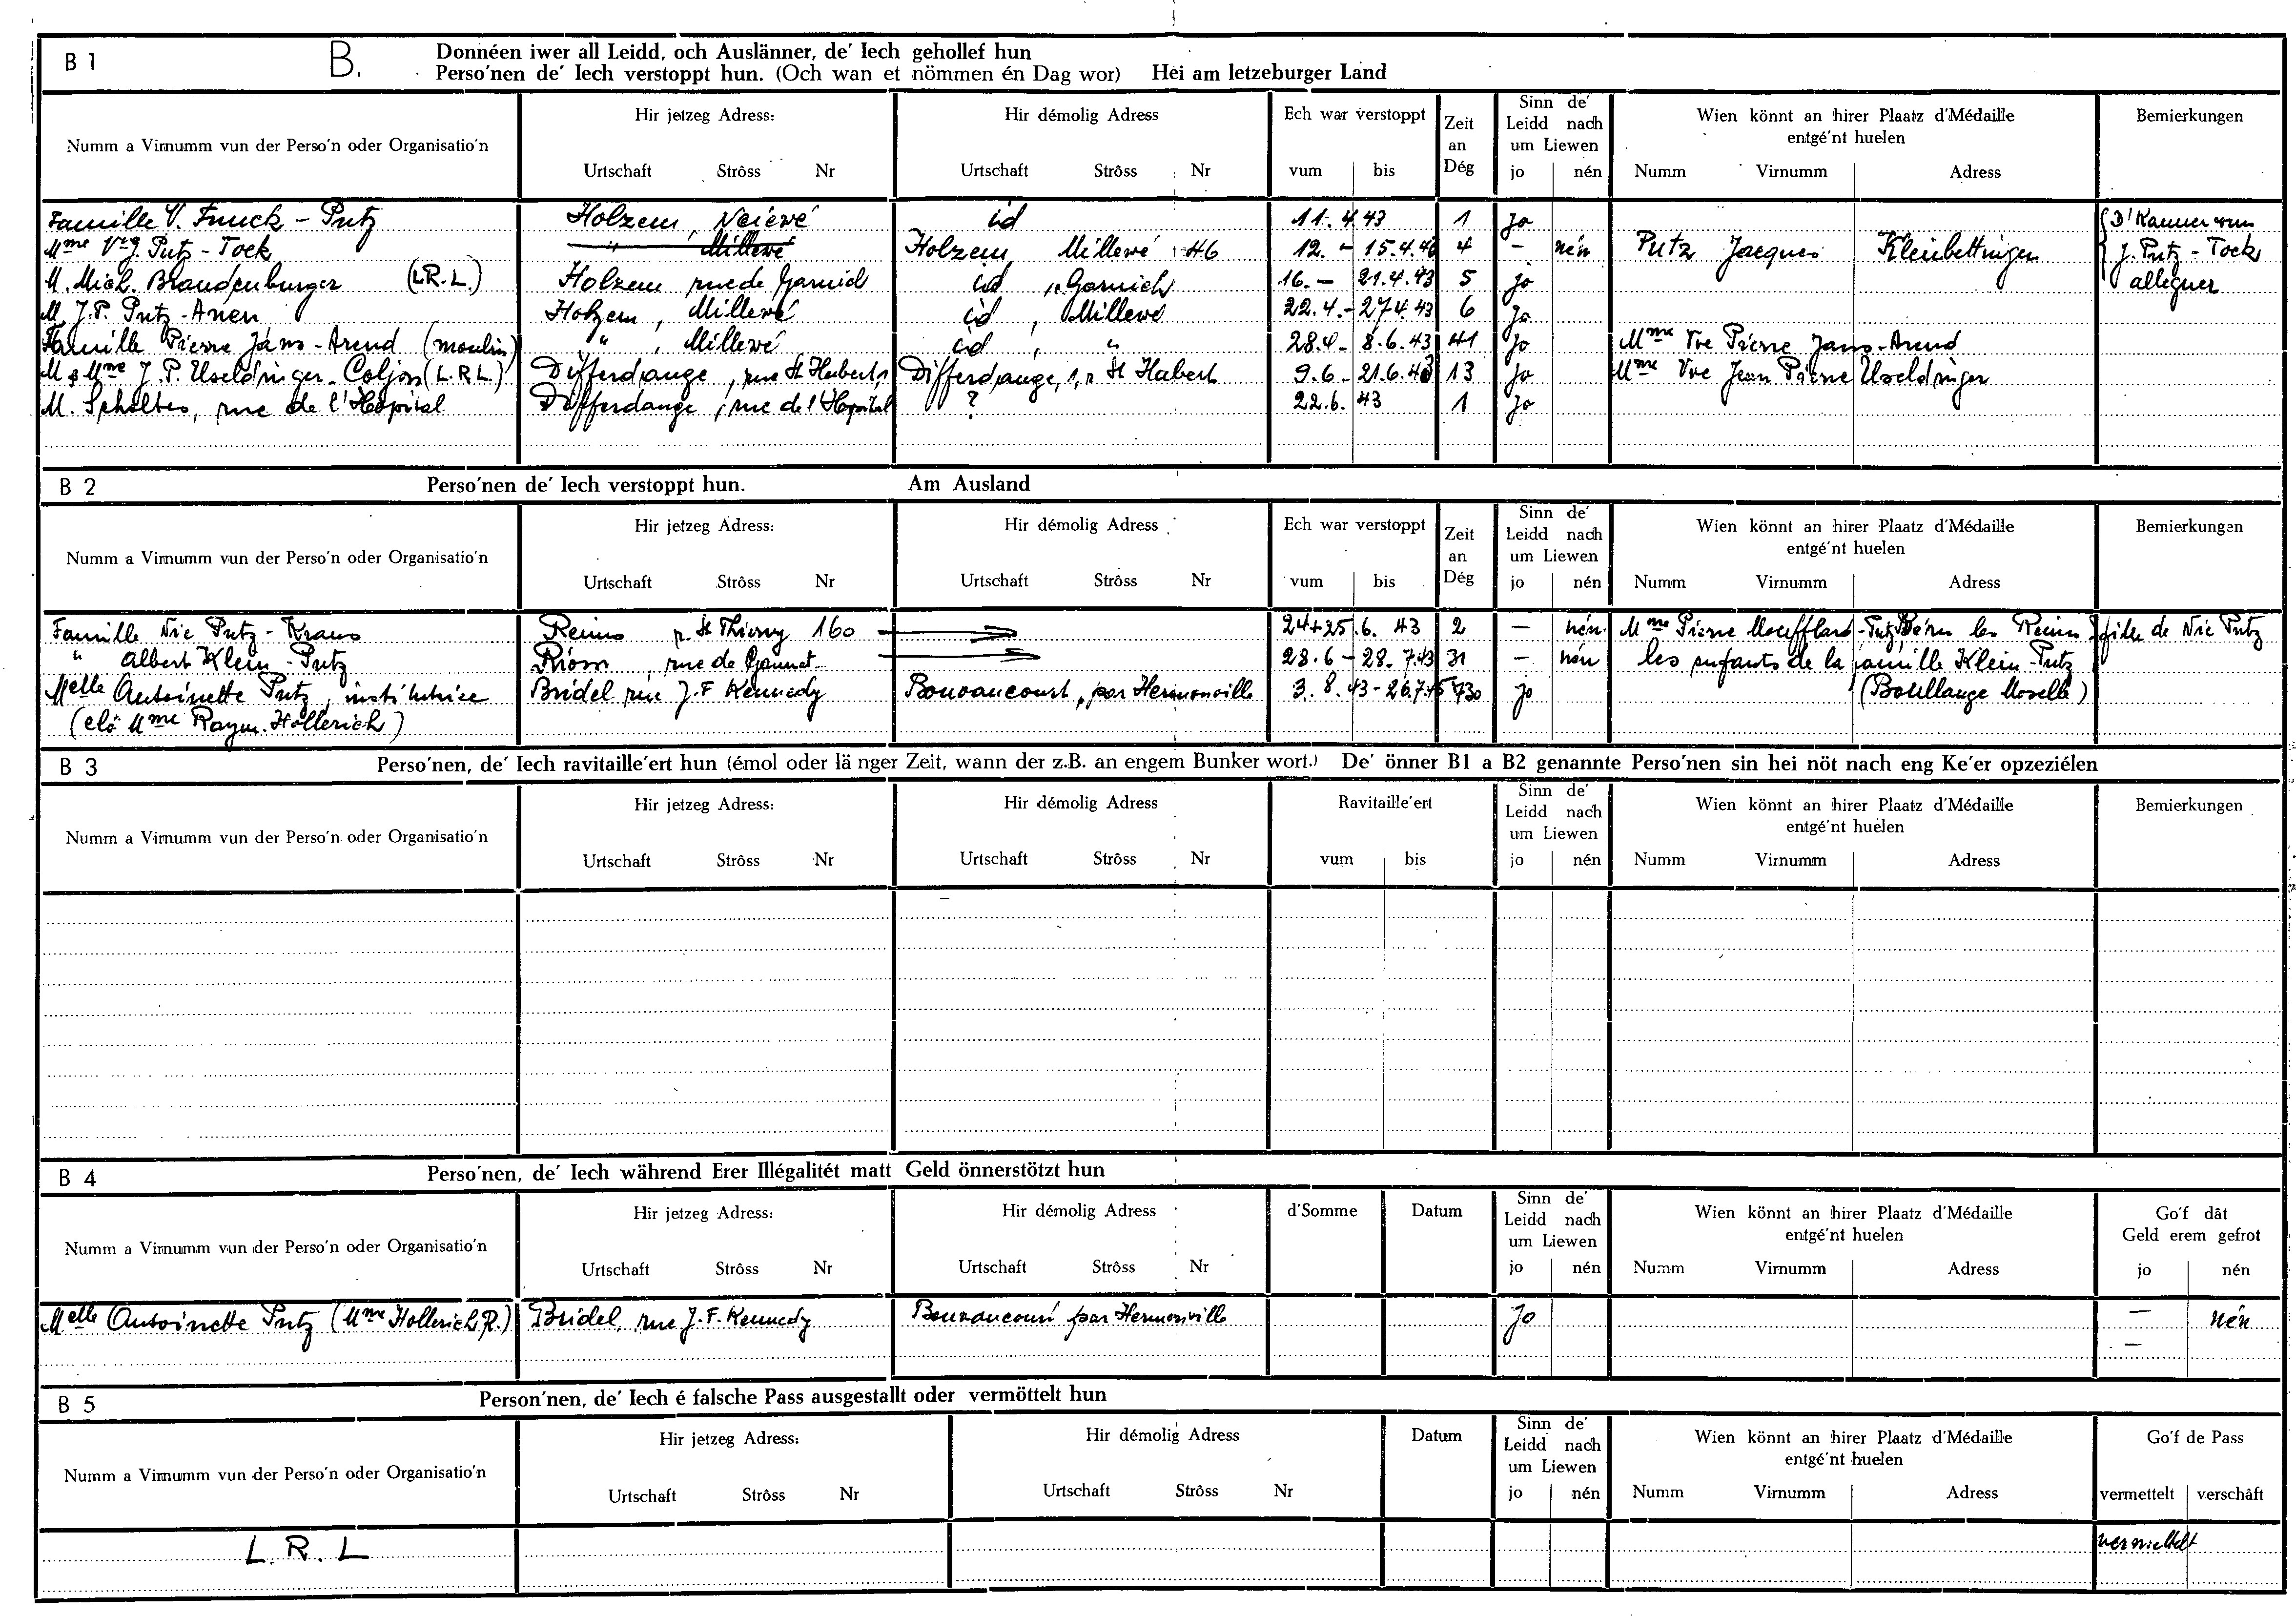 B 1 B. Donnéen iwer all Leidd, och Auslänner, de' Iech gehollef hun
Perso'nen de' Iech verstoppt hun. (Och wan et nömmen én Dag wor) Hei am letzeburger Land
Numm a Virnumm vun der Perso'n oder Organisatio'n
Hir jetzeg Adress:
Urtschaft Strôss Nr
Hir démolig Adress
Urtschaft Strôss Nr
Ech war verstoppt
vum bis
Zeit
an
Dég
Sinn de'
Leidd nach
um Liewen
jo nén
Wien könnt an hirer Plaatz d'Médaille
entgé'nt huelen
Numm Virnumm Adress
Bemierkungen
Famille V. Funck - Putz Holzem, Neiewé id 11. 4 43 1 Jo (D'Kanner vun
Mme Vve J. Putz - Tock " Millewé Holzem Millewé 46 12. - 15.4.43 4 - nén Putz Jacques Kleinbettingen J. Putz - Tock
M. Mich. Brandenburger (L.R.L.) Holzem rue de Garnich id " Garnich 16. - 21.4.43 5 Jo alleguer
M. J.P. Putz - Anen Holzem, Millewé id , Millewé 22.4. - 27.4.43 6 Jo
Famille Pierre Jans - Arend (moulin) " , Millewé id , " 28.4 - 8.6.43 41 Jo Mme Vve Pierre Jans - Arend
M & Mme J.P. Useldinger - Coljon (L.R.L.) Differdange, rue St Hubert, 1 Differdange, 1, r St Hubert 9.6 - 21.6.43 13 Jo Mme Vve Jean Pierre Useldinger
M. Scholtes, rue de l'Hôpital Differdange, rue de l'Hôpital ? 22.6. 43 1 Jo
B 2 Perso'nen de' Iech verstoppt hun. Am Ausland
Numm a Virnumm vun der Perso'n oder Organisatio'n
Hir jetzeg Adress:
Urtschaft Strôss Nr
Hir démolig Adress
Urtschaft Strôss Nr
Ech war verstoppt
vum bis
Zeit
an
Dég
Sinn de'
Leidd nach
um Liewen
jo nén
Wien könnt an hirer Plaatz d'Médaille
entgé'nt huelen
Numm Virnumm Adress
Bemierkungen
Famille Nic Putz - Kraus Reims r. St Thierry 160 24+25.6. 43 2 - nén Mme Pierre Moufflard - Putz Bétheny les Reims fille de Nic Putz
" Albert Klein - Putz Riom rue de Gannat 28.6 - 28.7.43 31 - nén les enfants de la famille Klein - Putz
Melle Antoinette Putz, institutrice Bridel rue J.F Kennedy Bouvancourt, par Hermonville 3.8.43 - 26.7.45 730 Jo (Boulange Moselle)
(elo Mme Raym. Hollerich)
B 3 Perso'nen, de' Iech ravitaille'ert hun (émol oder länger Zeit, wann der z.B. an engem Bunker wort.) De' önner B1 a B2 genannte Perso'nen sin hei nöt nach eng Ke'er opzeziélen
Numm a Virnumm vun der Perso'n oder Organisatio'n
Hir jetzeg Adress:
Urtschaft Strôss Nr
Hir démolig Adress
Urtschaft Strôss Nr
Ravitaille'ert
vum bis
Sinn de'
Leidd nach
um Liewen
jo nén
Wien könnt an hirer Plaatz d'Médaille
entgé'nt huelen
Numm Virnumm Adress
Bemierkungen
B 4 Perso'nen, de' Iech während Erer Illégalitét matt Geld önnerstötzt hun
Numm a Virnumm vun der Perso'n oder Organisatio'n
Hir jetzeg Adress:
Urtschaft Strôss Nr
Hir démolig Adress
Urtschaft Strôss Nr
d'Somme
Datum
Sinn de'
Leidd nach
um Liewen
jo nén
Wien könnt an hirer Plaatz d'Médaille
entgé'nt huelen
Numm Virnumm Adress
Go'f dât
Geld erem gefrot
jo nén
Melle Antoinette Putz (Mme Hollerich R.) Bridel, rue J.F. Kennedy Bouvancourt par Hermonville Jo - nén
-
B 5 Person'nen, de' Iech é falsche Pass ausgestallt oder vermöttelt hun
Numm a Virnumm vun der Perso'n oder Organisatio'n
Hir jetzeg Adress:
Urtschaft Strôss Nr
Hir démolig Adress
Urtschaft Strôss Nr
Datum
Sinn de'
Leidd nach
um Liewen
jo nén
Wien könnt an hirer Plaatz d'Médaille
entgé'nt huelen
Numm Virnumm Adress
Go'f de Pass
vermettelt verschâft
L. R. L vermettelt